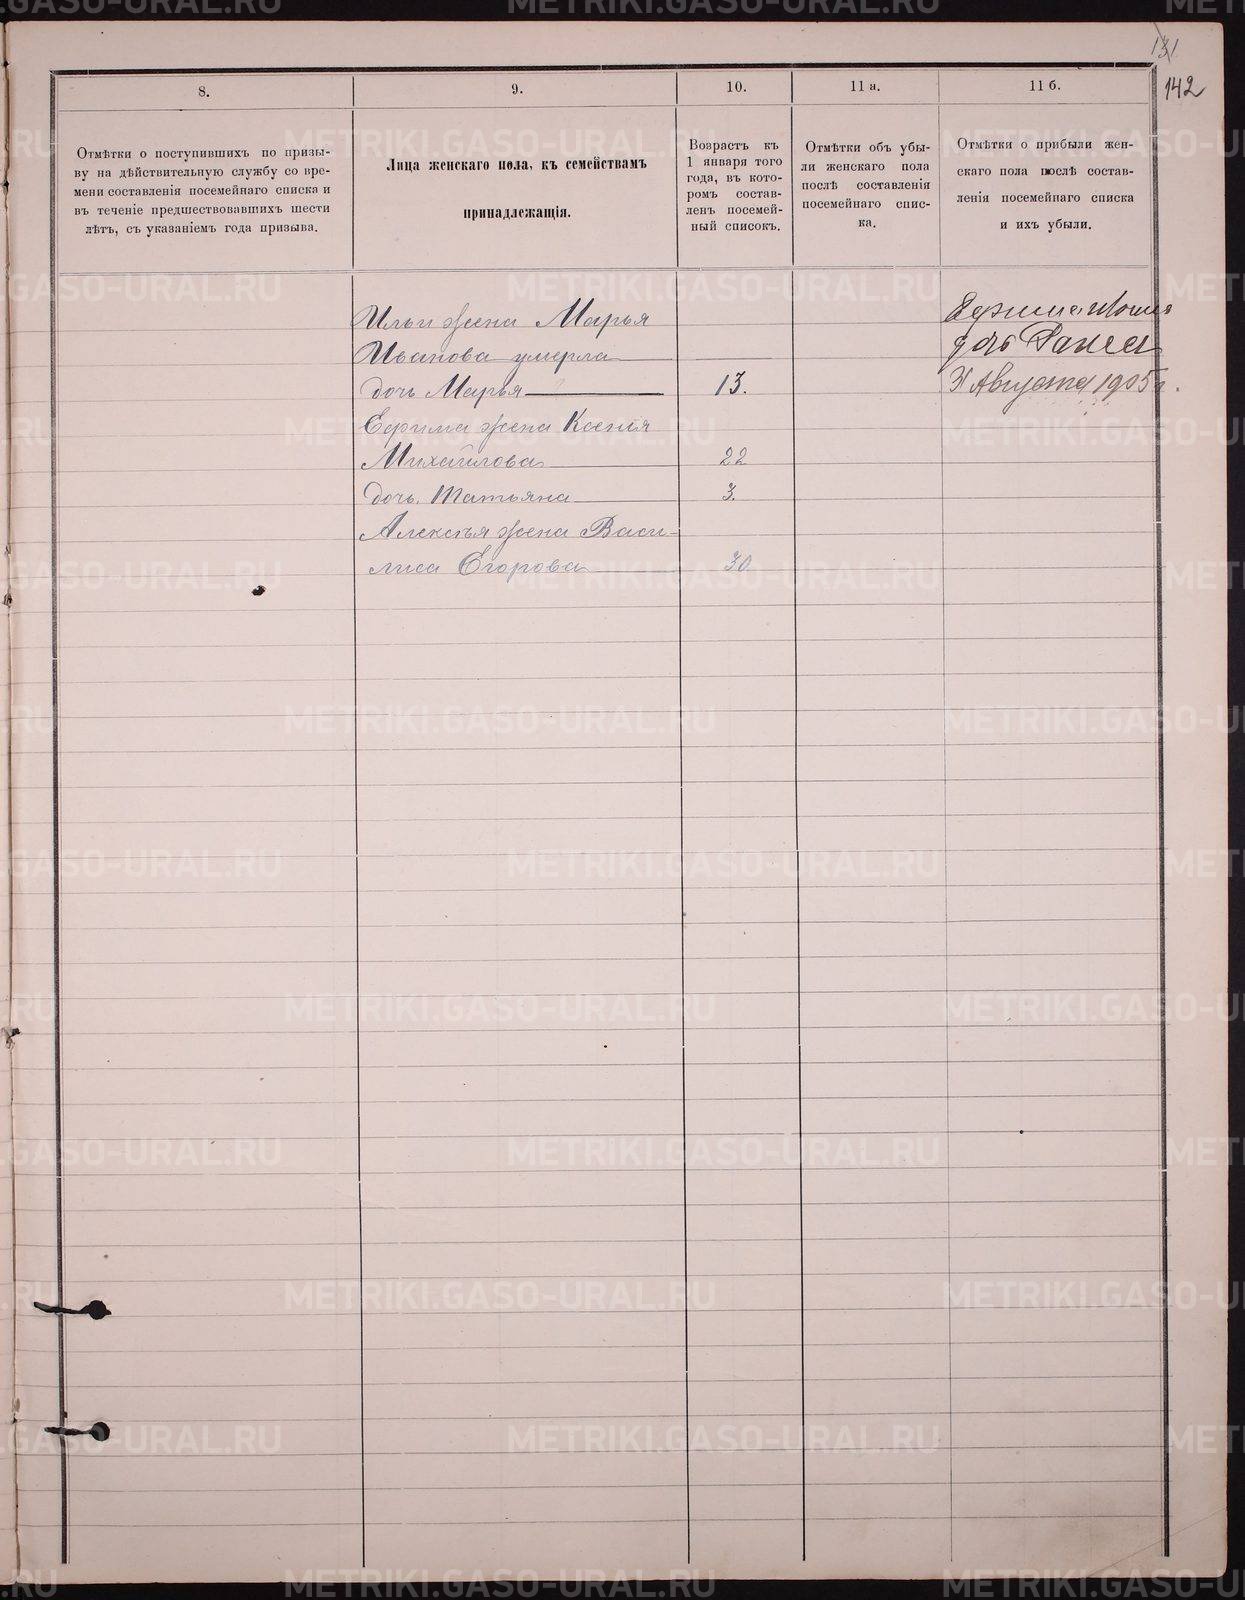 131
142
8.
Отмѣтки о поступившихъ по призы-
ву на дѣйствительную службу со вре-
мени составленія посемейнаго списка и
въ теченіе предшествовавшихъ шести
лѣтъ, съ указаніемъ года призыва.
9.
Лица женскаго пола, къ семействамъ
принадлежащія.
10.
Возрастъ къ
1 января того
года, въ кото-
ромъ состав-
ленъ посемей-
ный списокъ.
11 а.
Отмѣтки объ убы-
ли женскаго пола
послѣ составленія
посемейнаго спис-
ка.
11 б.
Отмѣтки о прибыли жен-
скаго пола послѣ состав-
ленія посемейнаго списка
и ихъ убыли.
Ильи жена Марья
Иванова умерла
дочь Марья 13.
Ефрима жена Ксенія
Михайлова 22
дочь Татьяна 3.
Алексѣя жена Васи-
лиса Егорова 30
дочь
Августа 1905 г.
METRIKI.GASO-URAL.RU